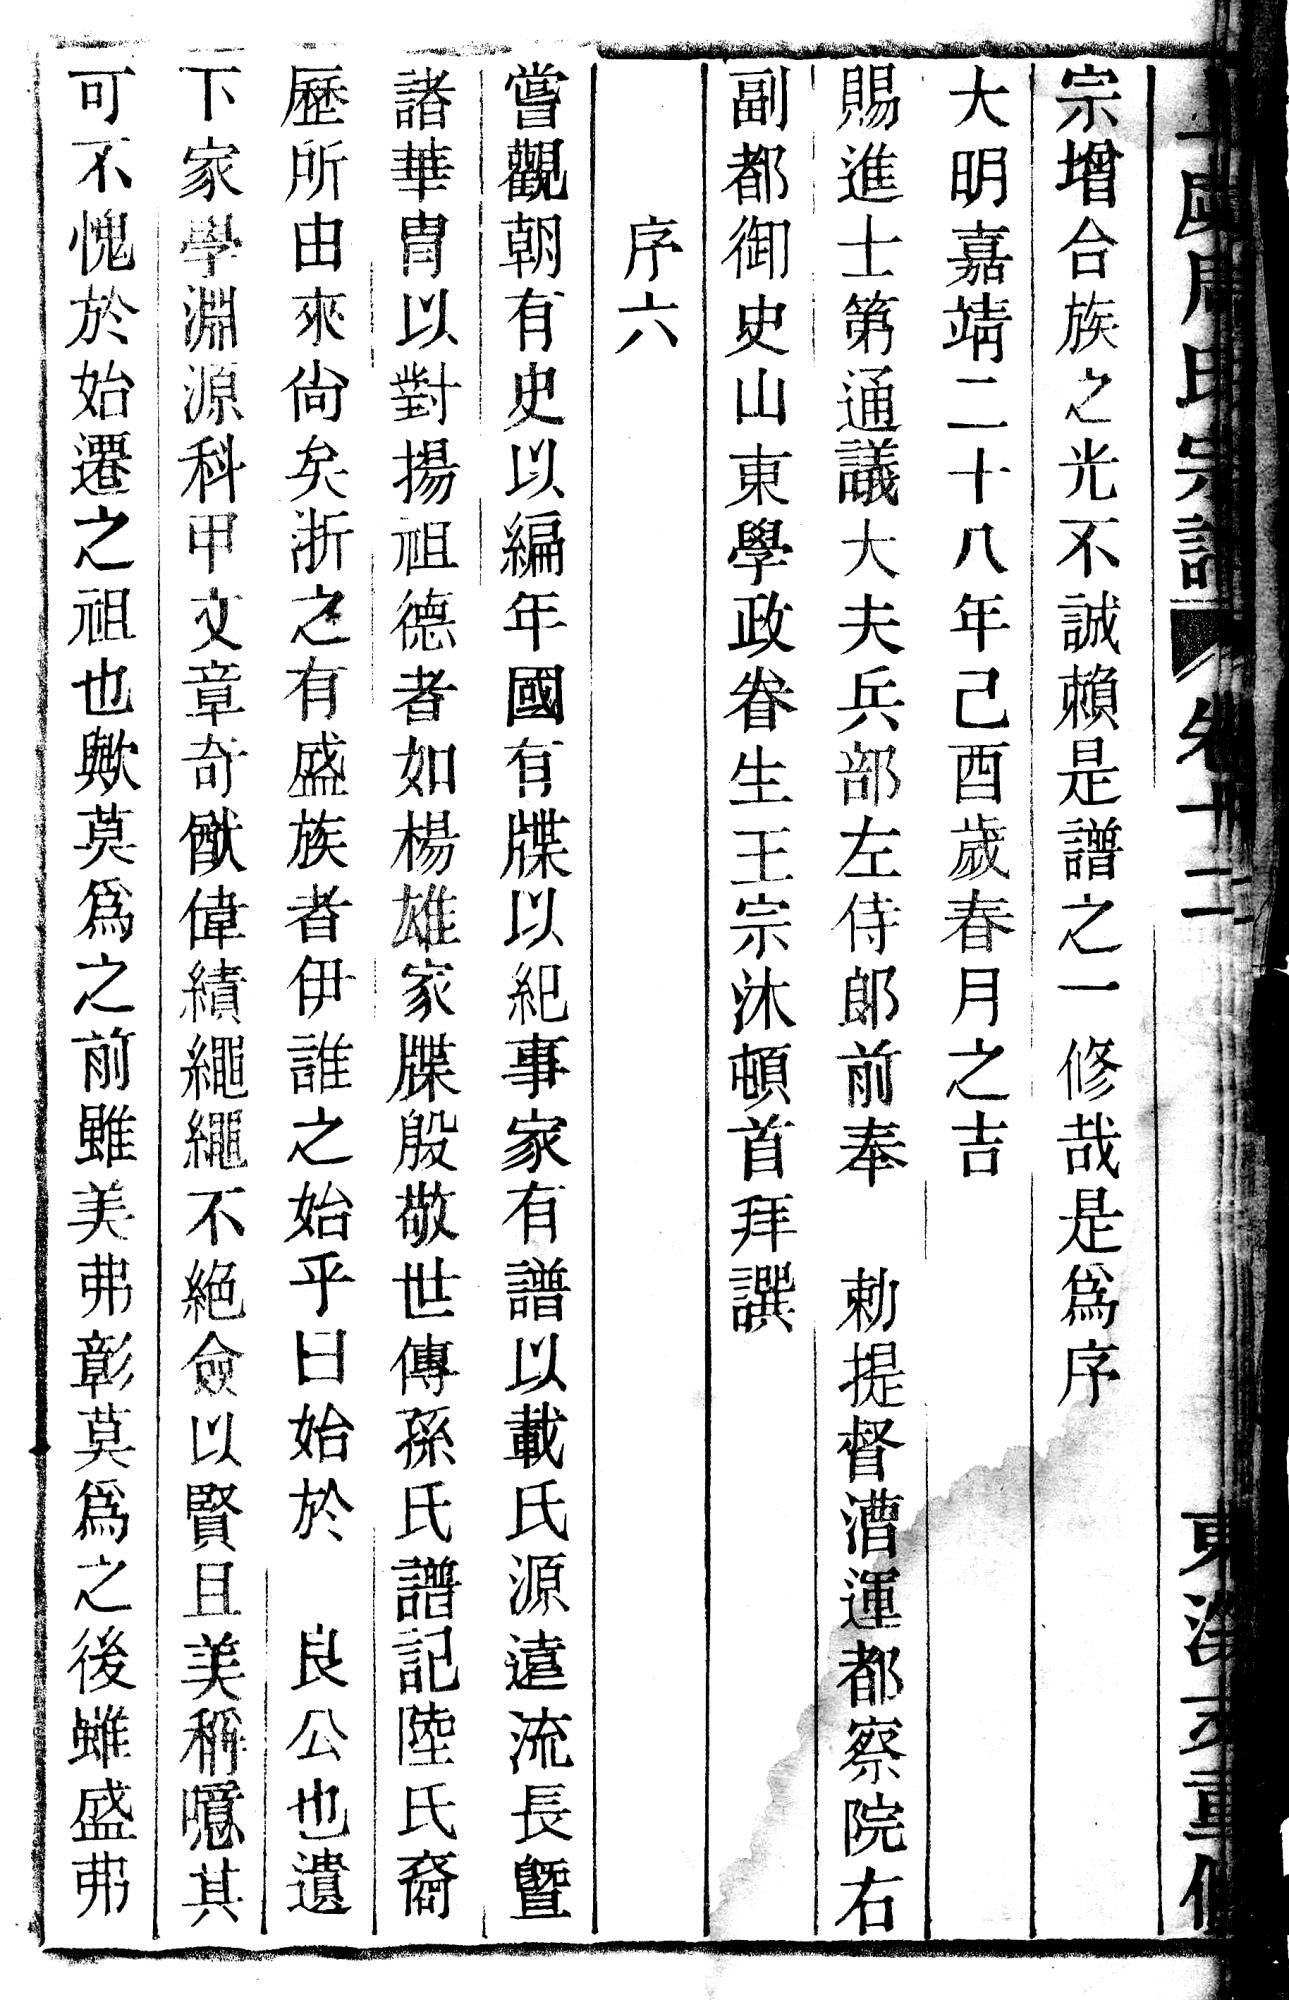 虞周氏宗譜 卷十二 東 重修
宗增合族之光不誠賴是譜之一修哉是爲序
大明嘉靖二十八年己酉歲春月之吉
賜進士第通議大夫兵部左侍郎前奉 勅提督漕運都察院右
副都御史山東學政眷生王宗沐頓首拜譔
序六
嘗觀朝有史以編年國有牒以紀事家有譜以載氏源遠流長曁
諸華胄以對揚祖德者如楊雄家牒殷敬世傳孫氏譜記陸氏裔
歷所由來尙矣浙之有盛族者伊誰之始乎曰始於 良公也遺
下家學淵源科甲文章奇猷偉績繩繩不絕僉以賢且美稱噫其
可不愧於始遷之祖也歟莫爲之前雖美弗彰莫爲之後雖盛弗